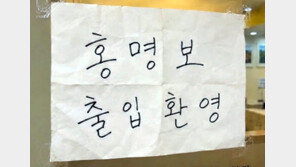 홍명보
출입 환영